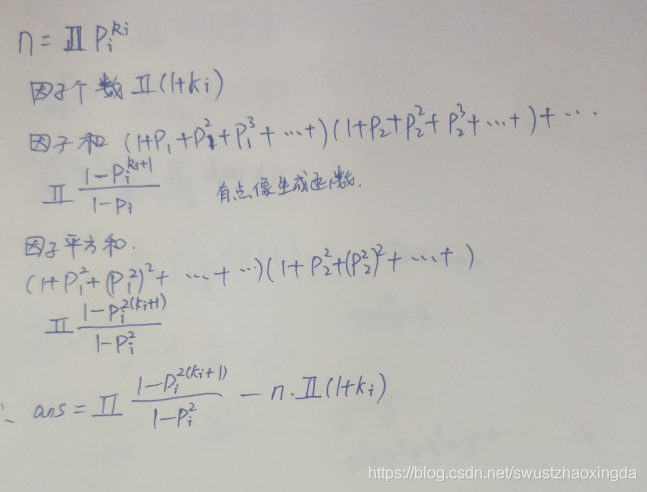 n = ∏ Pᵢ^kᵢ
因子个数 ∏(1+kᵢ)
因子和 (1+P₁+P₁²+P₁³+⋯+)(1+P₂+P₂²+P₂³+⋯+)+⋯
∏ (1-Pᵢ^(kᵢ+1))/(1-Pᵢ) 有点像生成函数.
因子平方和.
(1+P₁²+(P₁²)²+ ⋯+ ⋯)(1+P₂²+(P₂²)²+⋯+)
∏ (1-Pᵢ^2(kᵢ+1))/(1-Pᵢ²)
∴ ans = ∏ (1-Pᵢ^2(kᵢ+1))/(1-Pᵢ²) - n·∏(1+kᵢ)
https://blog.csdn.net/swustzhaoxingda